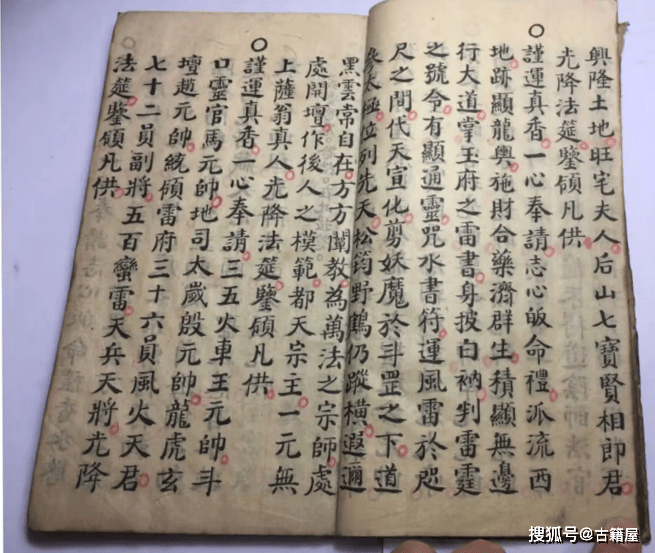 興隆土地旺宅夫人后山七寶賢相郎君
光降法筵鑒頌凡供
○
謹運真香一心奉請志心皈命禮派流西
地跡顯龍輿施財合藥濟群生積顯無邊
行大道掌玉府之雷書身披白衲判雷霆
之號令有顯通靈咒水書符運風雷於咫
尺之間代天宣化剪妖魔於斗罡之下道
參太極位列先天松筠野鶴仍蹤橫遐邇
黑雲常自在方方闡教為萬法之宗師處
處開壇作後人之模範都天宗王一元無
上薩翁真人光降法筵鑒頌凡供
○
謹運真香一心奉請三五火車王元帥斗
口靈官馬元帥地司太歲殷元帥龍虎玄
壇趙元帥統領雷府三十六員風火天君
七十二員副將五百蠻雷天兵天將光降
法筵鑒頌凡供
搜狐号@古籍屋